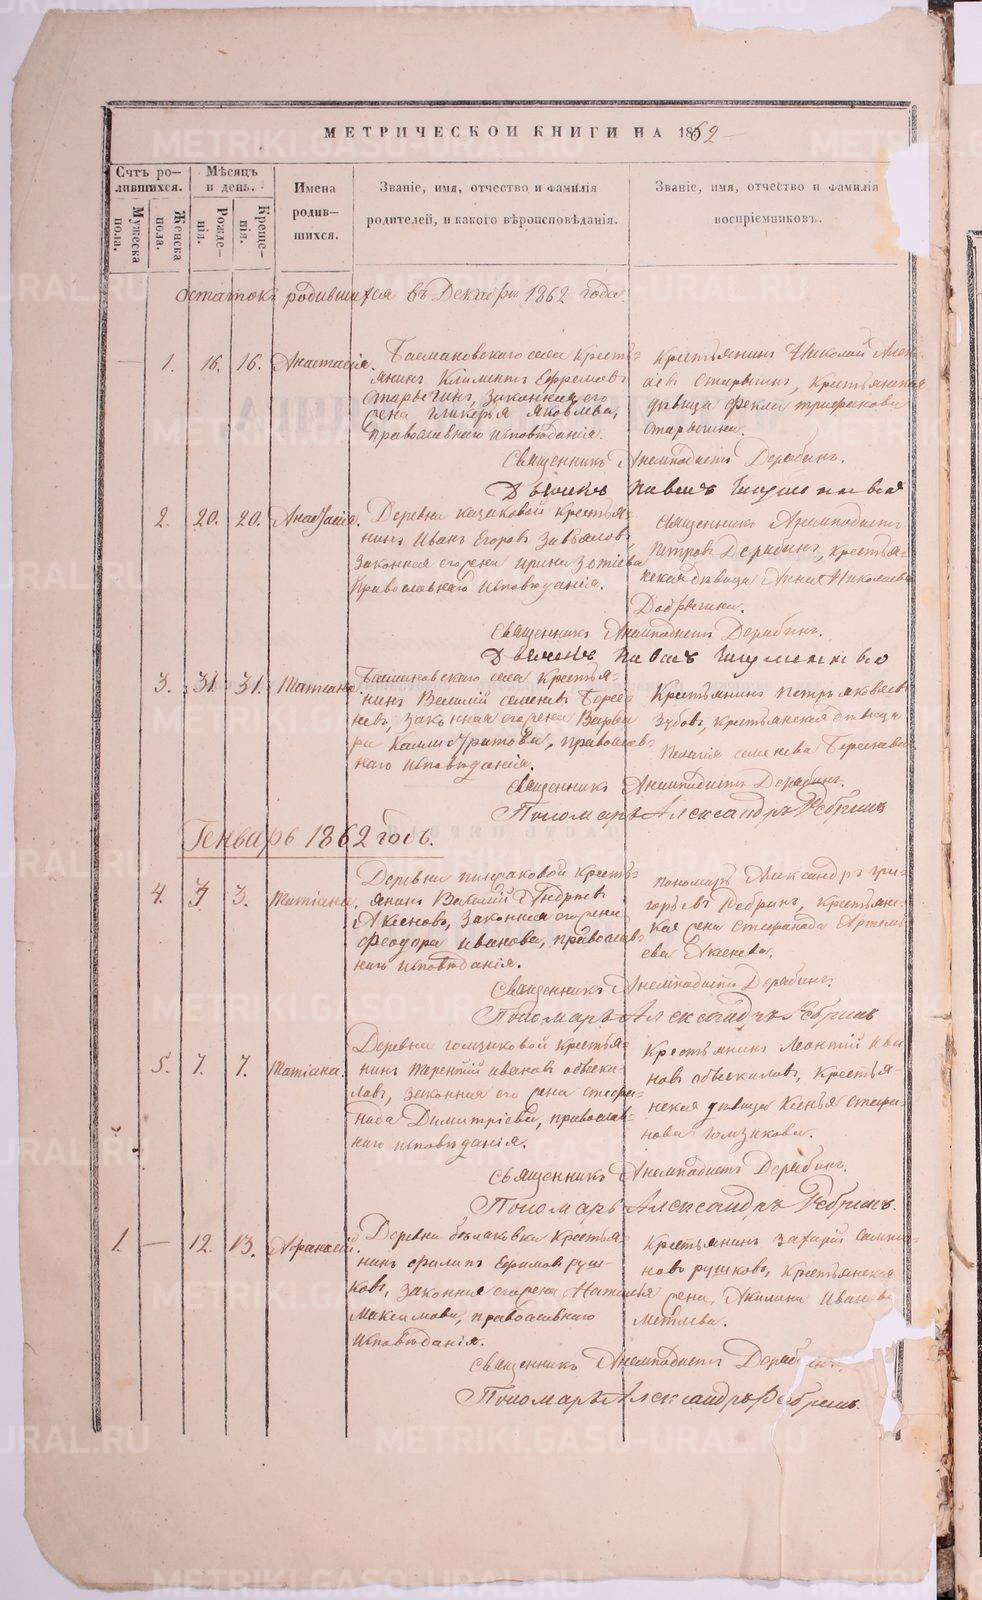 МЕТРИЧЕСКОЙ КНИГИ НА 1862
Счтъ ро-
лившихся.
Мужеска
пола.
Женска
пола.
Мѣсяцъ
и день.
Рожде-
нія.
Креще-
нія.
Имена
родив-
шихся.
Званіе, имя, отчество и фамилія
родителей, и какого вѣроисповѣданія.
Званіе, имя, отчество и фамилія
воспріемниковъ.
Остатокъ родившихся въ Декабрѣ 1862 года
1. 16. 16. Анастасія.
Басмановскаго села Кресть-
янинъ Климентъ Ефремовъ
Старыгинъ, законная его
жена Гликерья Яковлева,
Православнаго исповѣданія.
Крестьянинъ Николай
Старыгинъ, Крестьянская
дѣвица Фекла Трифонова
Старыгина.
Священникъ Анемподистъ Дерябинъ.
Дьячекъ Павелъ
2. 20. 20. Анастасія.
Деревни Казаковой Крестья-
нинъ Иванъ Егоровъ Завьяловъ,
Законная его жена Ирина Зотіева
Православнаго исповѣданія.
Священникъ Анемподистъ
Петровъ Дерябинъ, Крестья-
нская дѣвица Анна Николаева
Добрыгина.
Священникъ Анемподистъ Дерябинъ.
Дьячекъ Павелъ
3. 31. 31. Татіана.
Басмановскаго села Крестья-
нинъ Василій Семеновъ
законная его жена Варва-
ра Каллистратова, православ-
наго исповѣданія.
Крестьянинъ Петръ Яковлевъ
Зубовъ, Крестьянская дѣвица
Пелагія Семенова
Священникъ Анемподистъ Дерябинъ.
Пономарь Александръ Ребринъ
Генварь 1862 годъ.
4. 3 3. Татіана.
Деревни Кресть-
янинъ Василій Андреевъ
Аксеновъ, Законная его жена
Феодора Иванова, православ-
наго исповѣданія.
Пономарь Александръ Гри-
горьевъ Ребринъ, Крестьянс-
кая жена Стефанида Артемь-
ева Аксенова.
Священникъ Анемподистъ Дерябинъ.
Пономарь Александръ Ребринъ
5. 7. 7. Татіана.
Деревни Гомзиковой Крестья-
нинъ Терентій Ивановъ Объеки-
ловъ, законная его жена Стефа-
нида Димитріева, православ-
наго исповѣданія.
Крестьянинъ Леонтій Ива-
новъ Объекиловъ, Крестья-
нская дѣвица Ксенья Стефа-
нова Гомзикова.
Священникъ Анемподистъ Дерябинъ.
Пономарь Александръ Ребринъ.
1. — 12. 13. Афанасій.
Деревни Крестья-
нинъ Филипъ Ефимовъ Руш-
ковъ, законная его жена Наталья
Максимова, православнаго
Исповѣданія.
Крестьянинъ Захарій
новъ Рушковъ, Крестьянская
жена, Акилина Иванова
Метлева.
Священникъ Анемподистъ Дерябинъ.
Пономарь Александръ Ребринъ.
METRIKI.GASO-URAL.RU